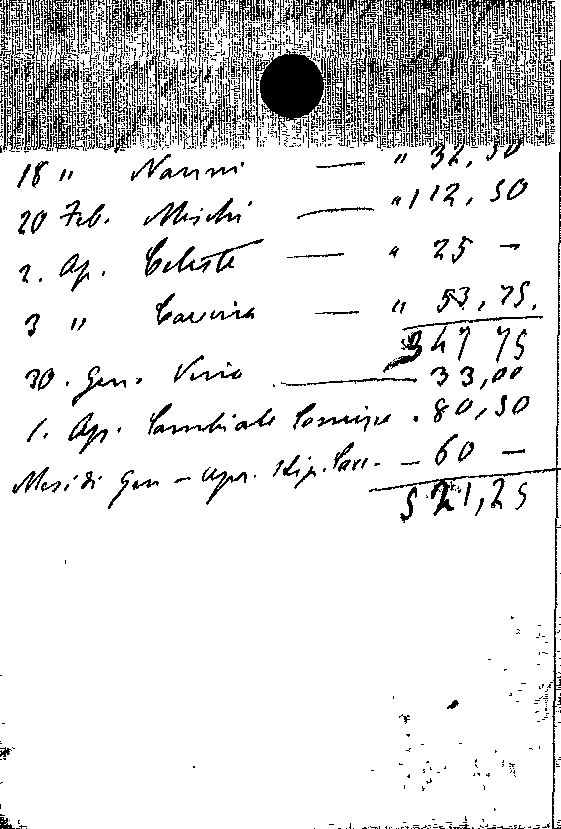 18 " Nanni — " 32,50
20 Feb. Mischi — " 112,50
2. Ap. Celeste — " 25 —
3 " — " 53,75.
347 75
30. Gen. — 33,00
1. Ap. Cambiale . 80,50
Mesi di Gen — Apr. Stip. — 60 —
521,25